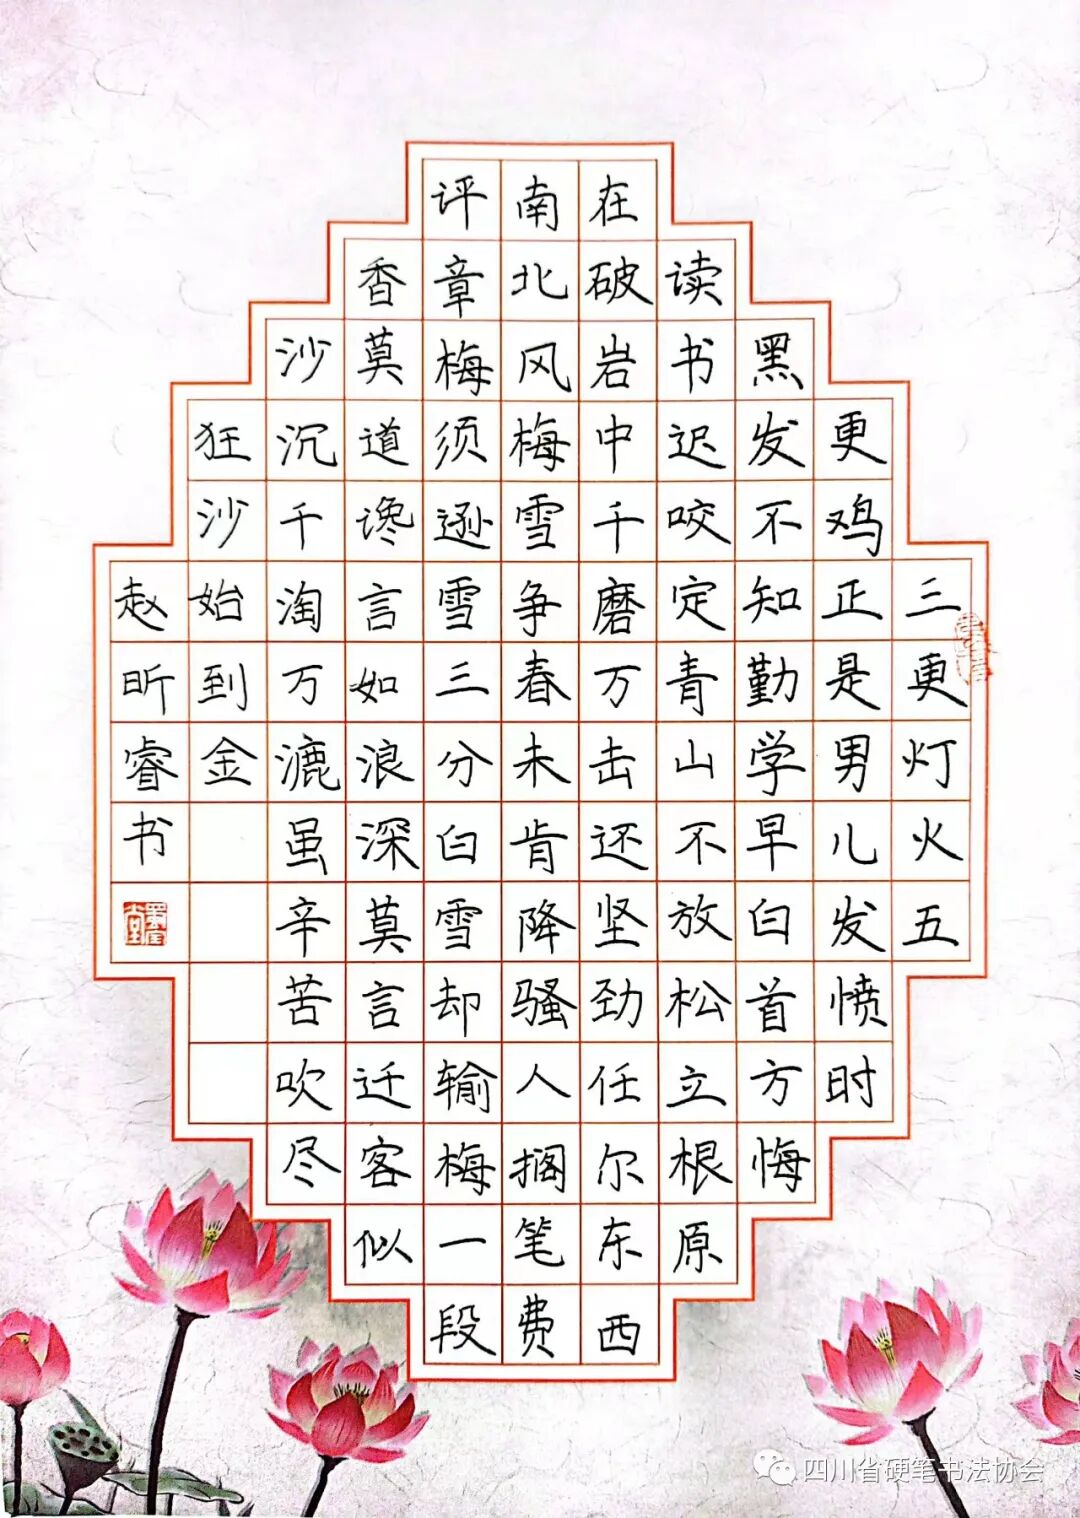 三更灯火五
更鸡正是男儿发愤时
黑发不知勤学早白首方悔
读书迟咬定青山不放松立根原
在破岩中千磨万击还坚劲任尔东西
南北风梅雪争春未肯降骚人搁笔费
评章梅须逊雪三分白雪却输梅一段
香莫道谗言如浪深莫言迁客似
沙沉千淘万漉虽辛苦吹尽
狂沙始到金
赵昕睿书
四川省硬笔书法协会